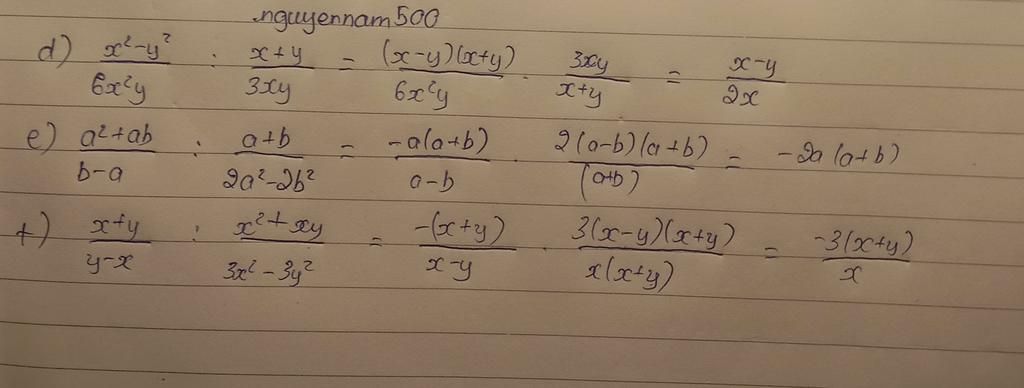 nguyennam500
d) \frac{x^2-y^2}{6x^2y} : \frac{x+y}{3xy} = \frac{(x-y)(x+y)}{6x^2y} \cdot \frac{3xy}{x+y} = \frac{x-y}{2x}
e) \frac{a^2+ab}{b-a} : \frac{a+b}{2a^2-2b^2} = \frac{-a(a+b)}{a-b} \cdot \frac{2(a-b)(a+b)}{(a+b)} = -2a(a+b)
f) \frac{x+y}{y-x} : \frac{x^2+xy}{3x^2-3y^2} = \frac{-(x+y)}{x-y} \cdot \frac{3(x-y)(x+y)}{x(x+y)} = \frac{-3(x+y)}{x}